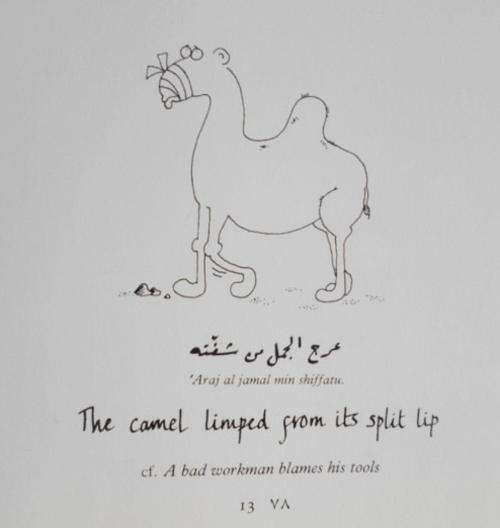 عرج الجمل من شفّته
'Araj al jamal min shiffatu.
The camel limped from its split lip
cf. A bad workman blames his tools
13 ٧٨